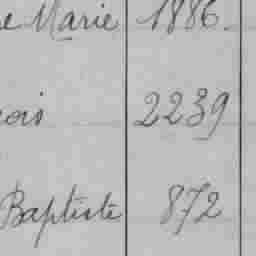 e Marie 1886
ois 2239
Baptiste 872